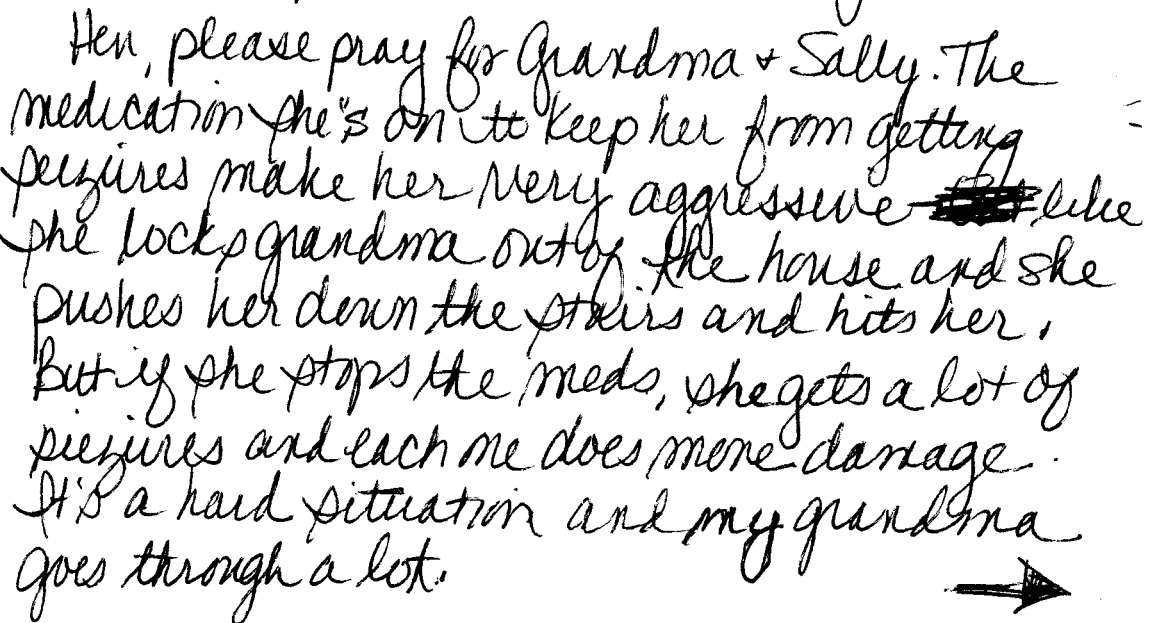 Hen, please pray for Grandma & Sally. The
medication she's on to keep her from getting
seizures make her very aggressive like
she locks grandma out of the house and she
pushes her down the stairs and hits her.
But if she stops the meds, she gets a lot of
siezures and each one does more damage.
It's a hard situation and my grandma
goes through a lot.